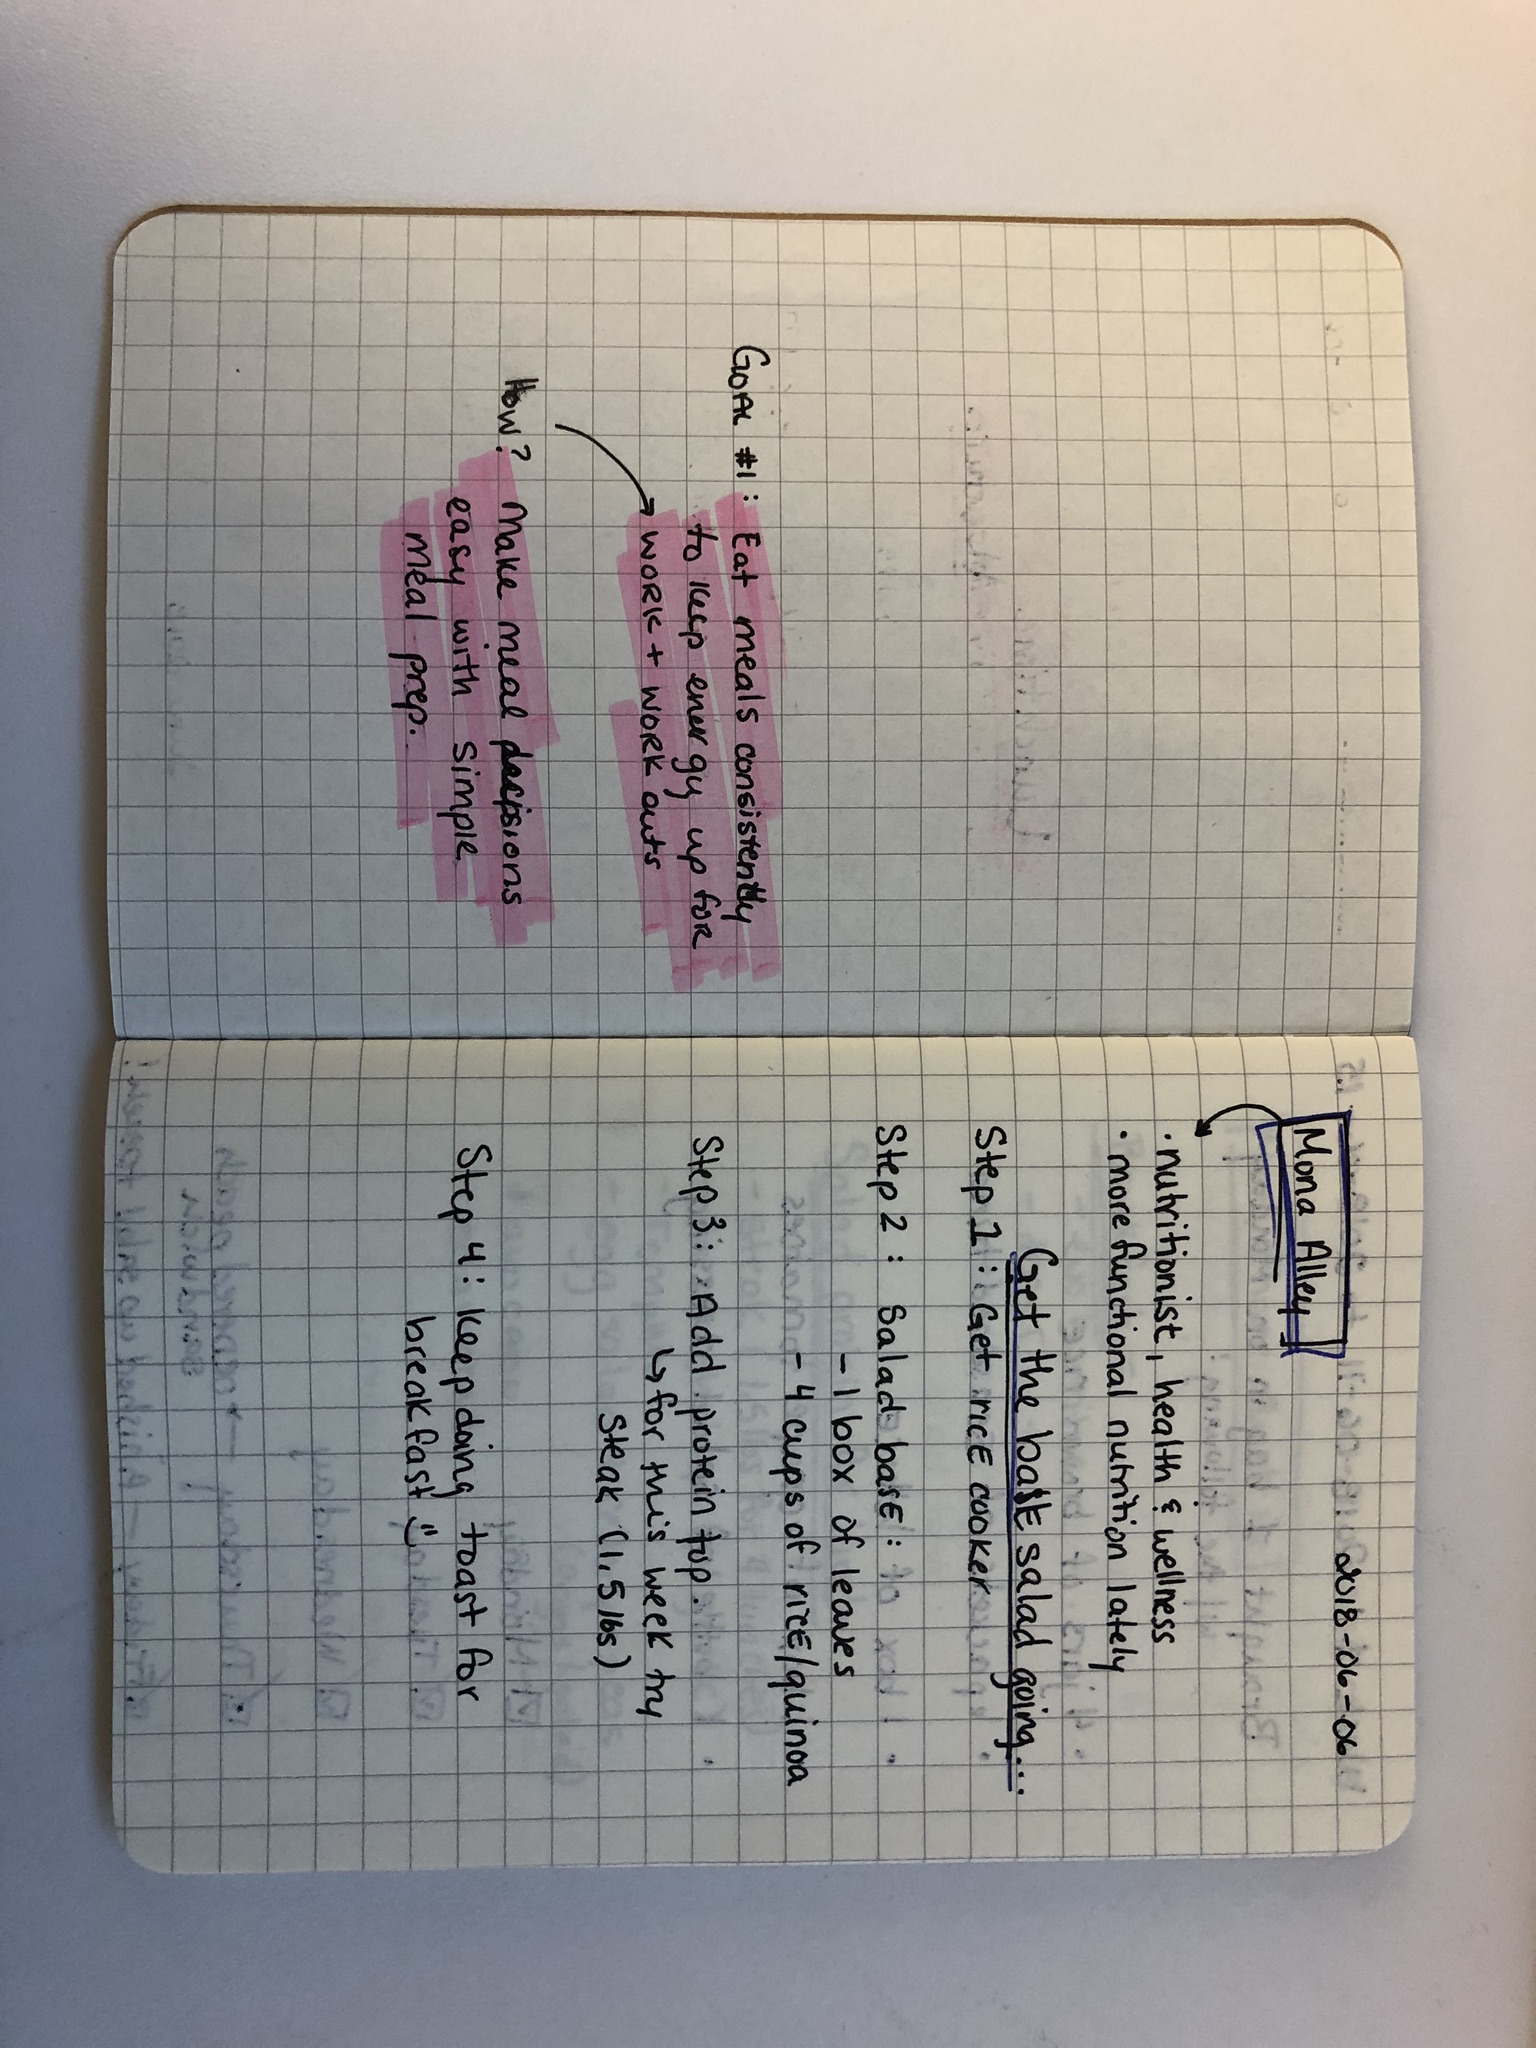 GOAL #1: Eat meals consistently
to keep energy up for
work + work outs
How? Make meal decisions
easy with simple
meal prep.
2018-06-06
Mona Alley
· nutritionist, health & wellness
· more functional nutrition lately
Get the base salad going...
Step 1: Get rice cooker
Step 2: Salad base:
- 1 box of leaves
- 4 cups of rice/quinoa
Step 3: Add protein top.
↳ for this week try
steak (1.5 lbs)
Step 4: Keep doing toast for
breakfast